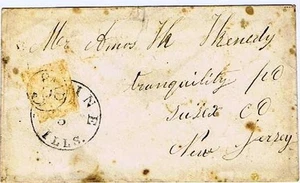 Mr Amos Th Thenedy
tranquility po
susex co
New Jersey
LINE
ILLS.